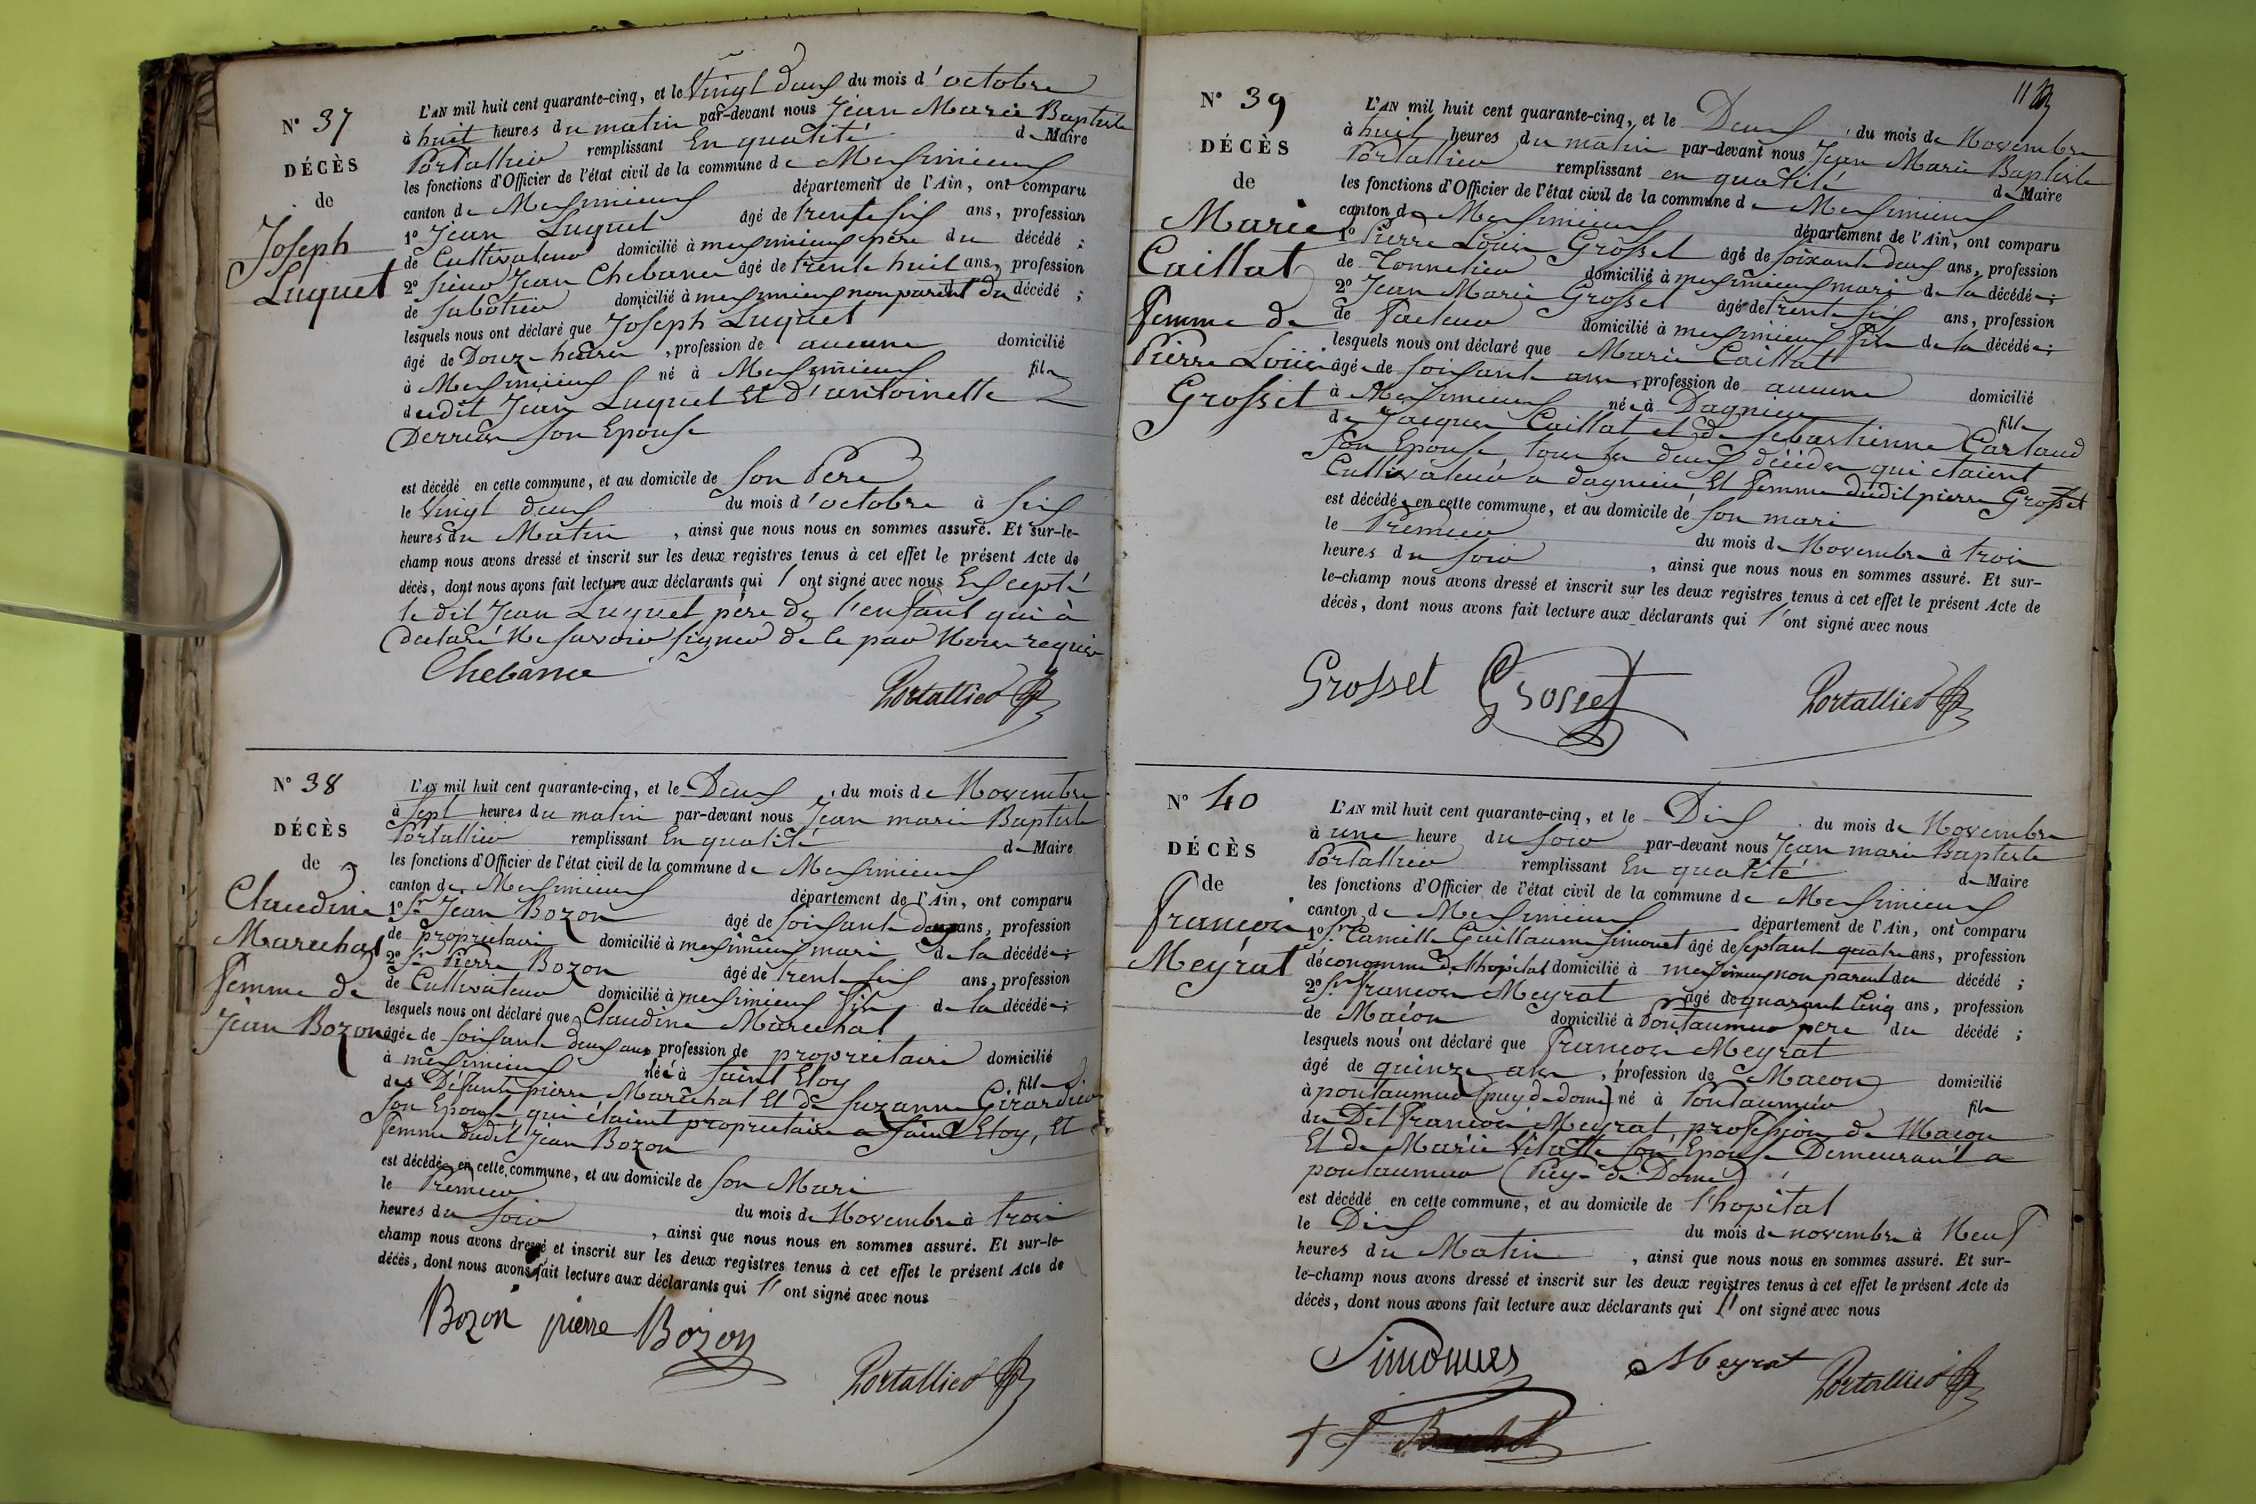 N° 37
DÉCÈS
de
Joseph
Luquet
L'AN mil huit cent quarante-cinq, et le Vingt deux du mois d'octobre
à huit heures du matin par-devant nous Jean Marie Baptiste
Portallier remplissant En qualité de Maire
les fonctions d'Officier de l'état civil de la commune de Meximieux
canton de Meximieux département de l'Ain, ont comparu
1° Jean Luquet âgé de trente six ans, profession
de Cultivateur domicilié à meximieux père du décédé ;
2° Sieur Jean Chebance âgé de trente huit ans, profession
de Sabotier domicilié à meximieux non parent du décédé ;
lesquels nous ont déclaré que Joseph Luquet
âgé de Douze heures, profession de aucune domicilié
à Meximieux né à Meximieux fils
dudit Jean Luquet Et d'antoinette
Derrias son Epouse
est décédé en cette commune, et au domicile de Son Pere
le Vingt deux du mois d'octobre à six
heures du Matin, ainsi que nous nous en sommes assuré. Et sur-le-
champ nous avons dressé et inscrit sur les deux registres tenus à cet effet le présent Acte de
décès, dont nous avons fait lecture aux déclarants qui l'ont signé avec nous Excepté
le dit Jean Luquet père de l'enfant qui à
declaré Ne savoir signer de le par Nous requis
Chebance
Portallier
N° 38
DÉCÈS
de
Claudine
Marechal
femme de
Jean Bozon
L'AN mil huit cent quarante-cinq, et le Deux du mois de Novembre
à Sept heures du matin par-devant nous Jean marie Baptiste
Portallier remplissant En qualité de Maire
les fonctions d'Officier de l'état civil de la commune de Meximieux
canton de Meximieux département de l'Ain, ont comparu
1° Sr Jean Bozon âgé de soixante deux ans, profession
de propriétaire domicilié à meximieux mari de la décédée ;
2° Sr Pierre Bozon âgé de trente six ans, profession
de Cultivateur domicilié à meximieux fils de la décédée ;
lesquels nous ont déclaré que Claudine Marechal
âgée de soixante deux ans profession de propriétaire domicilié
à meximieux née à Saint Eloy fille
des Défunts pierre Maréchal Et de suzanne Girardier
son Epouse, qui étaient propriétaires a Saint Eloy, Et
femme dudit Jean Bozon
est décédée en cette commune, et au domicile de son Mari
le Premier du mois de Novembre à trois
heures du soir, ainsi que nous nous en sommes assuré. Et sur-le-
champ nous avons dressé et inscrit sur les deux registres tenus à cet effet le présent Acte de
décès, dont nous avons fait lecture aux déclarants qui l'ont signé avec nous
Bozon pierre Bozon
Portallier
11
N° 39
DÉCÈS
de
Marie
Caillat
femme de
Pierre Louis
Grosset
L'AN mil huit cent quarante-cinq, et le Deux du mois de Novembre
à huit heures du matin par-devant nous Jean Marie Baptiste
Portallier remplissant en qualité de Maire
les fonctions d'Officier de l'état civil de la commune de Meximieux
canton de Meximieux département de l'Ain, ont comparu
1° Pierre Louis Grosset âgé de soixante deux ans, profession
de Tonnelier domicilié à meximieux mari de la décédée ;
2° Jean Marie Grosset âgé de trente six ans, profession
de Facteur domicilié à meximieux fils de la décédée ;
lesquels nous ont déclaré que Marie Caillat
âgée de soixante ans, profession de aucune domicilié
à Meximieux née à Dagnieu fille
de Jacques Caillat et de sebastienne Cartaud
son Epouse, tous les deux décédés qui étaient
Cultivateur a dagnieu Et femme dudit pierre Grosset
est décédée en cette commune, et au domicile de son mari
le Premier du mois de Novembre à trois
heures du soir, ainsi que nous nous en sommes assuré. Et sur-
le-champ nous avons dressé et inscrit sur les deux registres tenus à cet effet le présent Acte de
décès, dont nous avons fait lecture aux déclarants qui l'ont signé avec nous
Grosset Grosset Portallier
N° 40
DÉCÈS
de
François
Meyrat
L'AN mil huit cent quarante-cinq, et le Dix du mois de Novembre
à une heure du soir par-devant nous Jean marie Baptiste
Portallier remplissant En qualité de Maire
les fonctions d'Officier de l'état civil de la commune de Meximieux
canton de Meximieux département de l'Ain, ont comparu
1° Sr Camille Guillaume Simonet âgé de septante quatre ans, profession
d'économme de l'hopital domicilié à meximieux non parent du décédé ;
2° Sr françois Meyrat âgé de quarante Cinq ans, profession
de Maçon domicilié à Pontaumur pere du décédé ;
lesquels nous ont déclaré que françois Meyrat
âgé de quinze ans, profession de Macon domicilié
à pontaumur (puy de dome) né à Pontaumur fils
du Dit françois Meyrat profession de Macon
Et de Marie Vilatte son Epouse Demeurant a
pontaumur (Puy-de-Dome)
est décédé en cette commune, et au domicile de l'hopital
le Dix du mois de novembre à Neuf
heures du Matin, ainsi que nous nous en sommes assuré. Et sur-
le-champ nous avons dressé et inscrit sur les deux registres tenus à cet effet le présent Acte de
décès, dont nous avons fait lecture aux déclarants qui l'ont signé avec nous
Meyrat Portallier